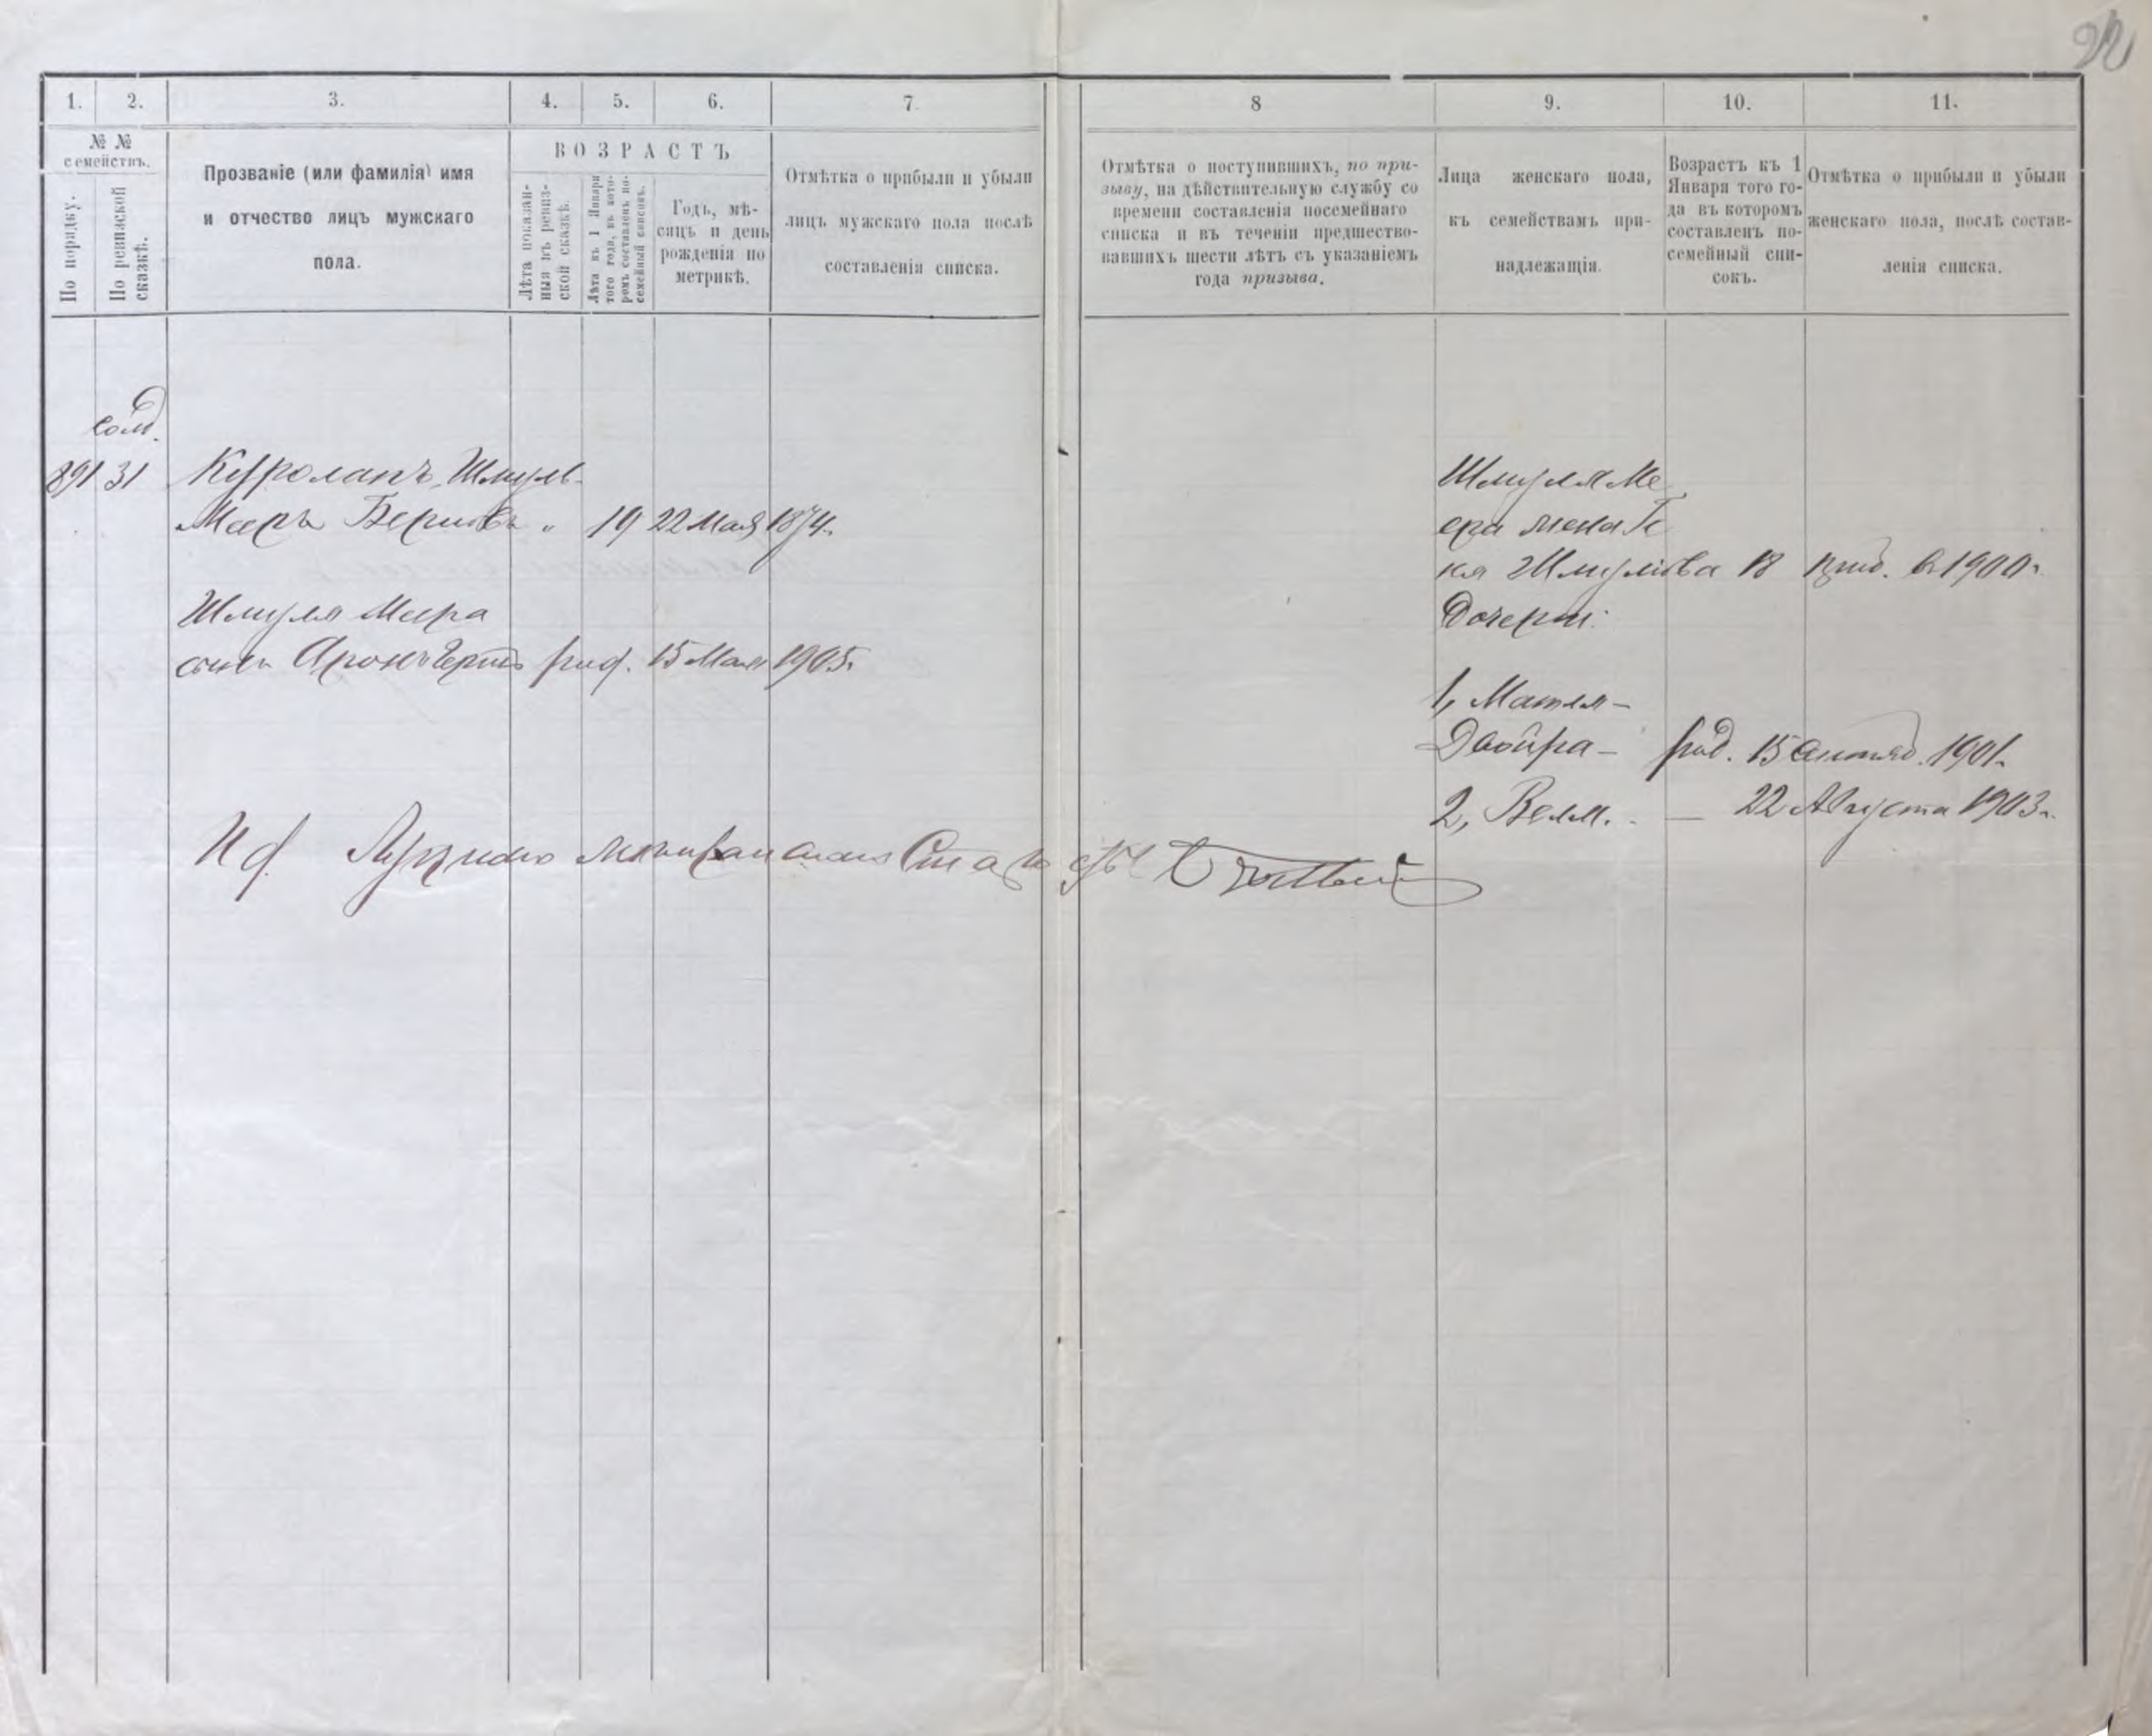 1.
2.
3.
4.
5.
6.
7
8
9.
10.
11.
№ №
семействъ.
По порядку.
По ревизской
сказкѣ.
Прозваніе (или фамилія) имя
и отчество лицъ мужскаго
пола.
ВОЗРАСТЪ
Лѣта показан-
ныя въ ревиз-
ской сказкѣ.
Лѣта къ 1 Января
того года, въ кото-
ромъ составленъ по-
семейный списокъ.
Годъ, мѣ-
сяцъ и день
рожденія по
метрикѣ.
Отмѣтка о прибыли и убыли
лицъ мужскаго пола послѣ
составленія списка.
Отмѣтка о поступившихъ, по при-
зыву, на дѣйствительную службу со
времени составленія посемейнаго
списка и въ теченіи предшество-
вавшихъ шести лѣтъ съ указаніемъ
года призыва.
Лица женскаго пола,
къ семействамъ при-
надлежащія.
Возрастъ къ 1
Января того го-
да въ которомъ
составленъ по-
семейный спи-
сокъ.
Отмѣтка о прибыли и убыли
женскаго пола, послѣ состав-
ленія списка.
891 31 Шмуль
Мееръ Берковъ " 19 22 Мая 1874.
Шмуля Меера
сынъ Аронъ род. 15 Мая 1905.
Шмуля Ме
ера жена
Шмулiова 18 1900.
Дочери:
1, Матля-
Двойра- род. 15 1901.
2, Велл. - 22 Августа 1903г.
И д. Старосты